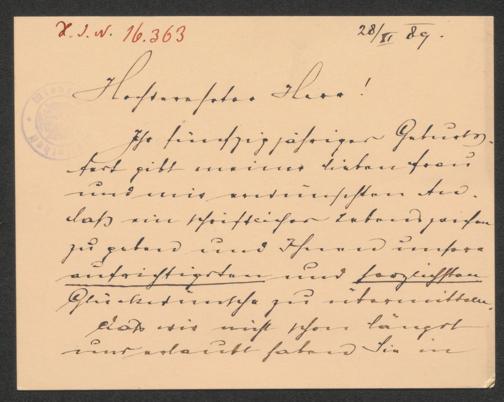 H. I. N. 16.363
28/XI 89.
Hochverehrter Herr!
Ihr fünfzigjähriges Geburts-
fest gibt meiner lieben Frau
und mir erwünschten An-
laß ein schriftliches Lebenszeichen
zu geben und Ihnen unsere
aufrichtigsten und herzlichsten
Glückwünsche zu übermitteln.
Daß wir nicht schon längst
uns erlaubt haben Sie in